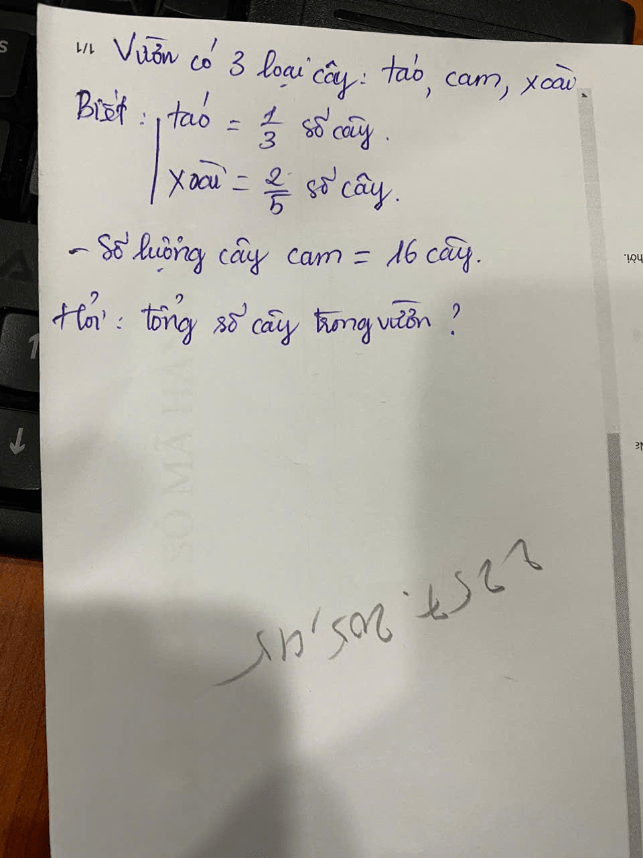 Vườn có 3 loại cây: táo, cam, xoài.
Biết: táo = 1/3 số cây.
xoài = 2/5 số cây.
- Số lượng cây cam = 16 cây.
Hỏi: tổng số cây trong vườn?